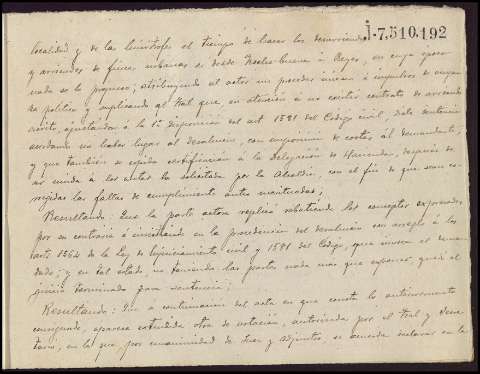 J-7,510,192
localidad y de las limítrofes el tiempo de hacer los desahucios
y arriendos de fincas urbanas es desde Noche-buena á Reyes, en cuya época
nada se le propuso; atribuyendo al actor un proceder
político y suplicando al Tral que, en atención á no existir contrato de arriendo
escrito, ajustándose á la 1ª disposición del art 1581 del Código civil, dicte sentencia
acordando no haber lugar al desahucio, con imposición de costas al demandante;
y que también se expida certificación á la Delegación de Hacienda, después de
ser unida á los autos la solicitada por la Alcaldía, con el fin de que sean co-
rregidas las faltas de cumplimiento antes mencionadas;
Resultando: Que la parte actora replicó rebatiendo los conceptos expresados
por su contraria é insistiendo en la procedencia del desahucio con arreglo á los
arts 1564 de la Ley de Enjuiciamiento civil y 1581 del Código, que invoca el deman-
dado; y en tal estado, no teniendo las partes nada más que exponer, quedó el
juicio terminado para sentencia;
Resultando: Que á continuación del acta en que consta lo anteriormente
consignado, aparece extendida otra de votación, autorizada por el Tral y Secre-
tario, en la que, por unanimidad de Juez y adjuntos, se acuerda declarar en la